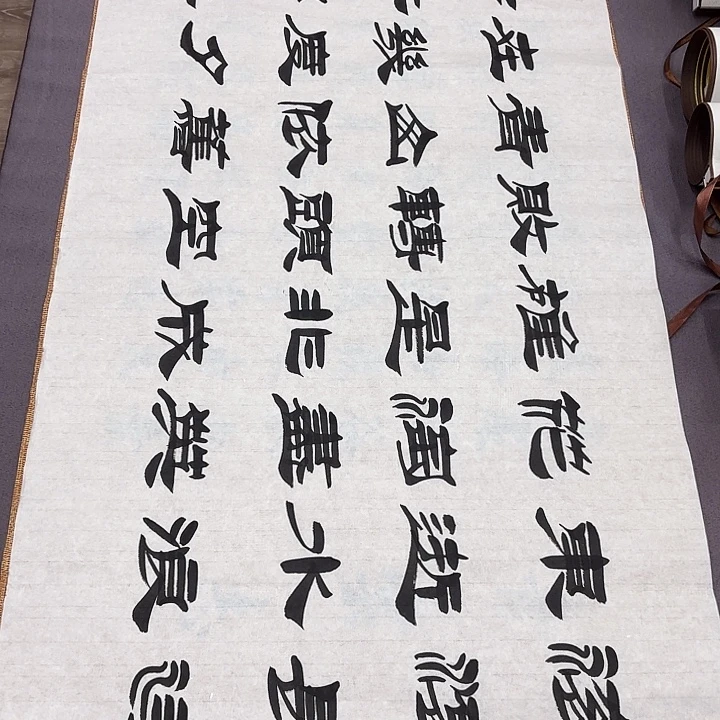 滾滾長江
東逝水浪
花淘盡英
雄是非成
敗轉頭空
青山依舊
在幾度夕